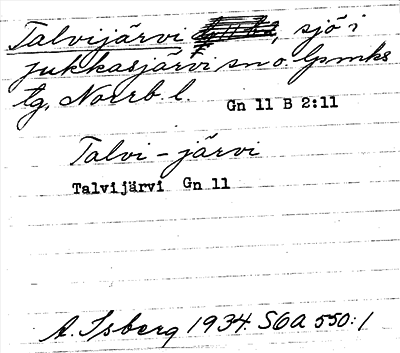 Talvijärvi, sjö i
Jukkasjärvi sn o. lpmks
tg, Norrb. l. Gn 11 B 2:11
Talvi-järvi
Talvijärvi Gn 11
A. Isberg 1934. SOA 550:1